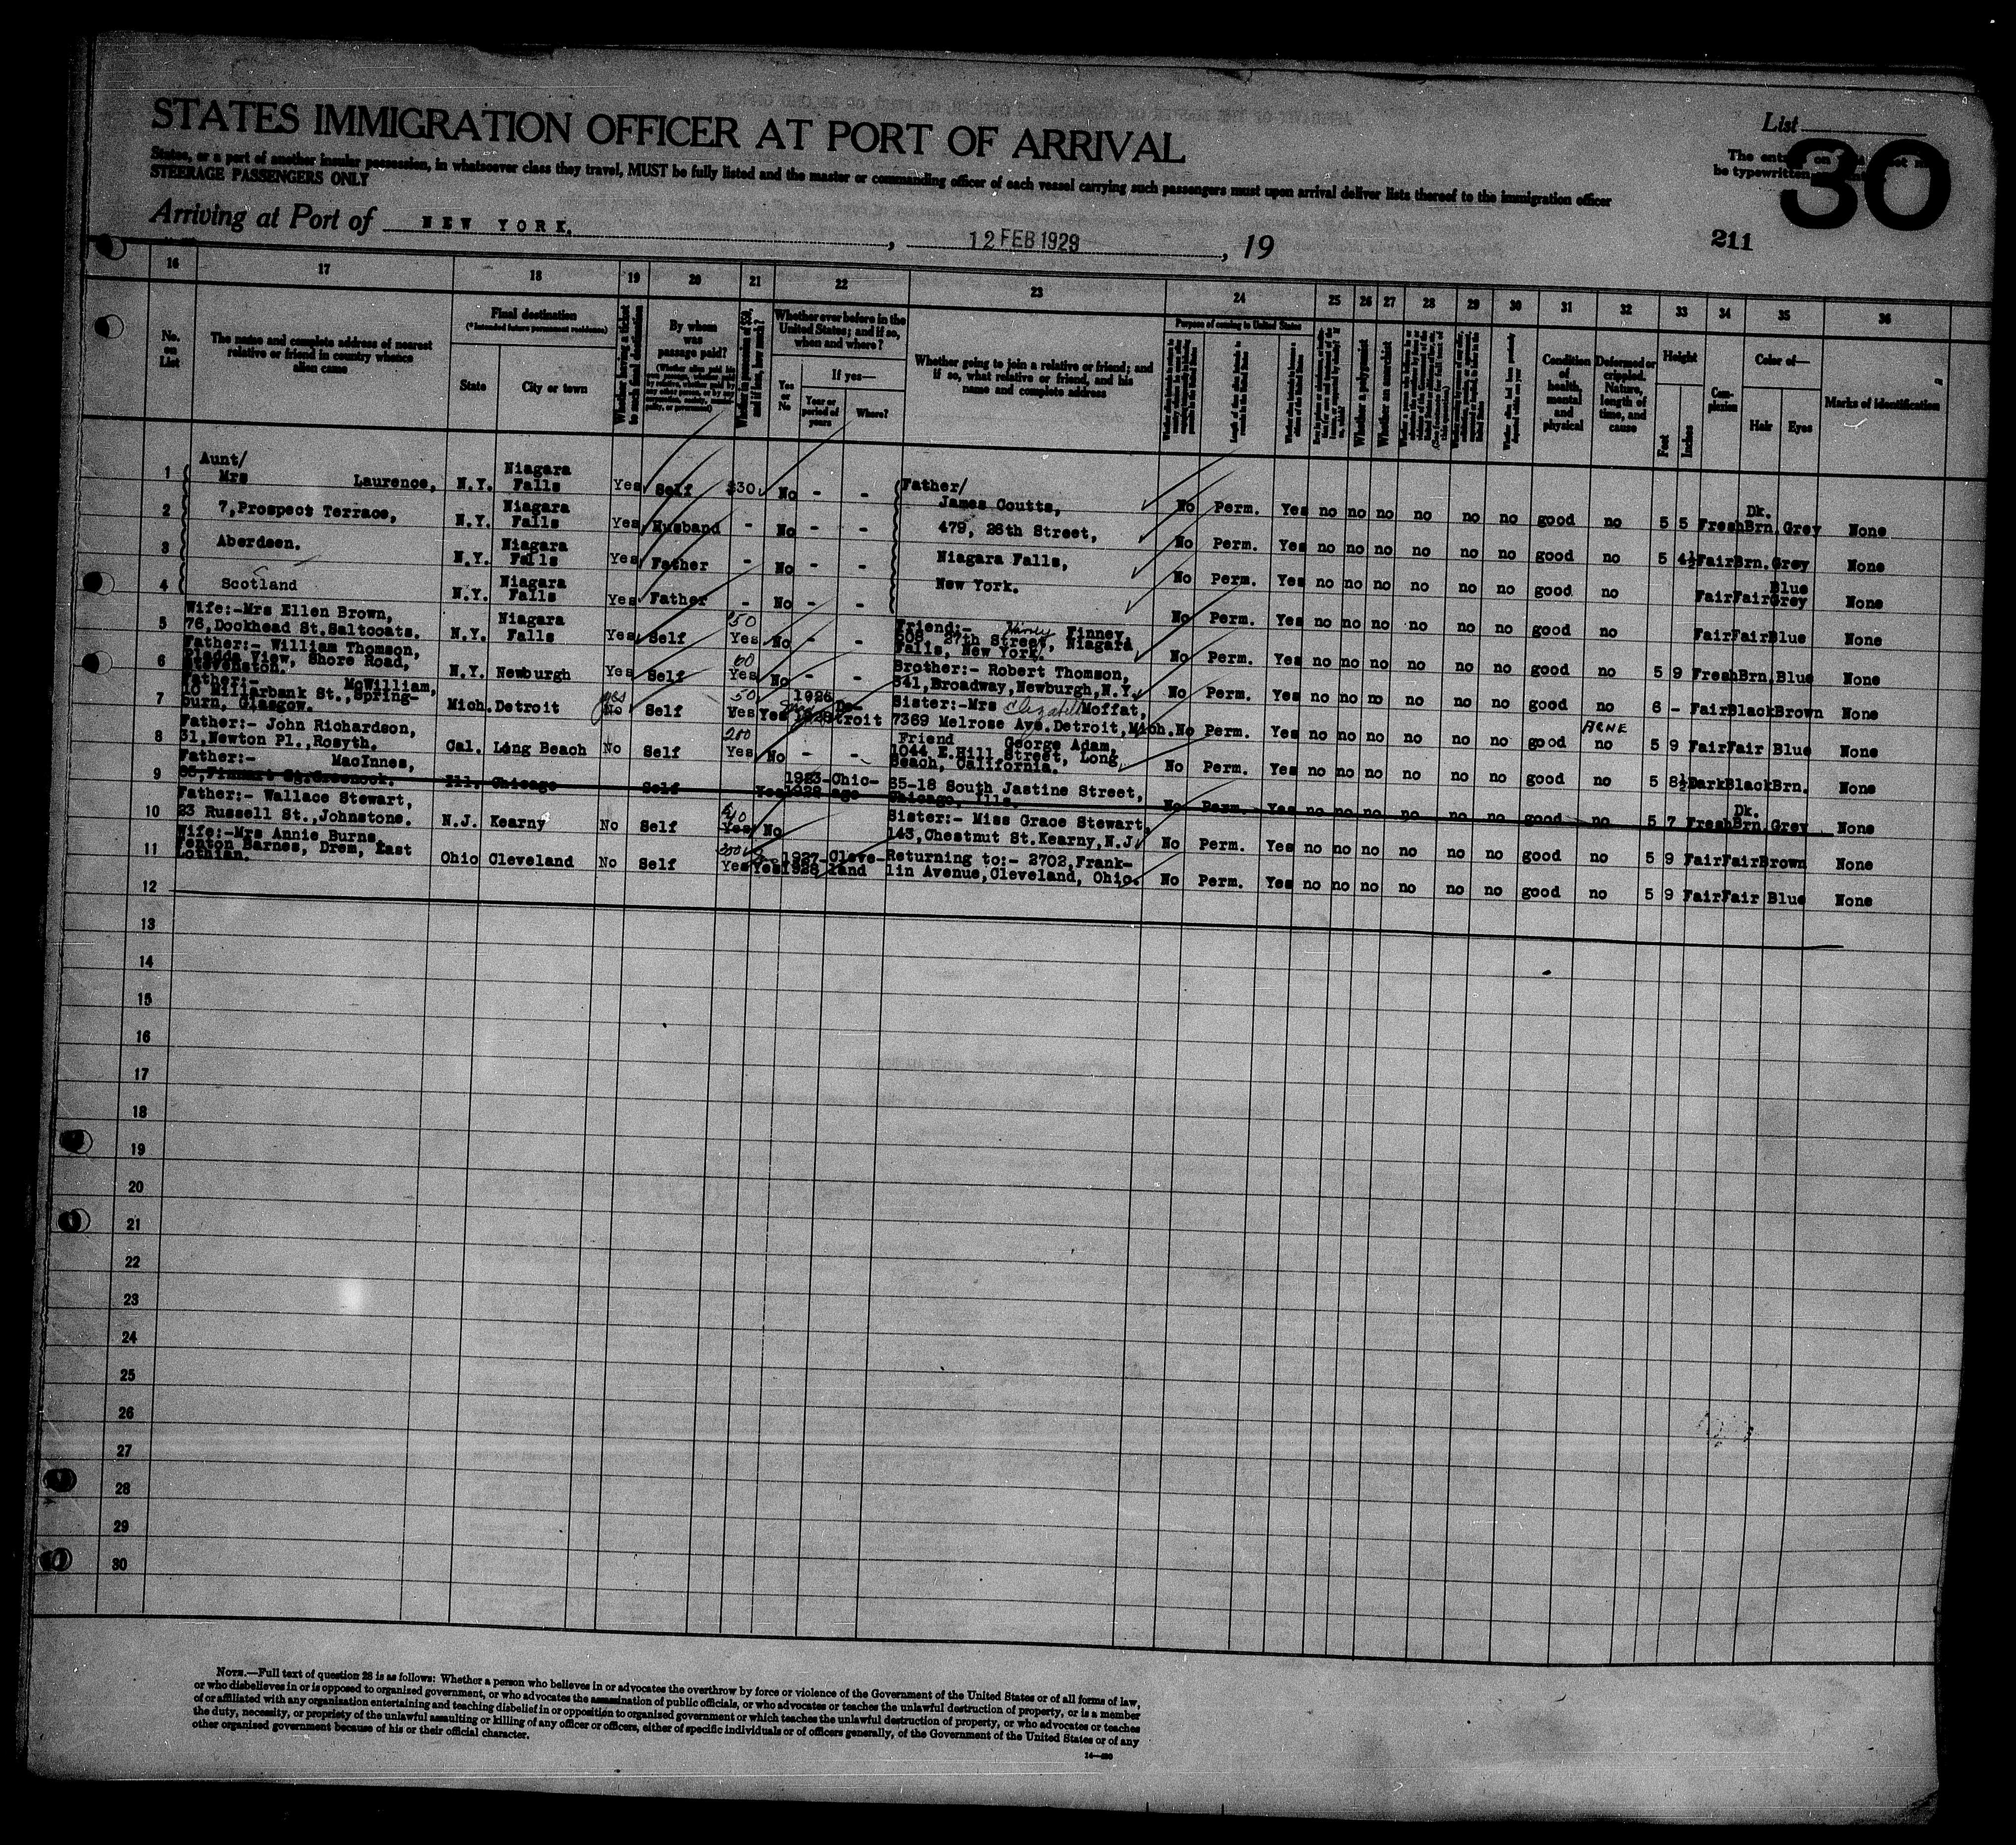 STATES IMMIGRATION OFFICER AT PORT OF ARRIVAL
States, or a port of another insular possession, in whatsoever class they travel, MUST be fully listed and the master or commanding officer of each vessel carrying such passengers must upon arrival deliver lists thereof to the immigration officer
STEERAGE PASSENGERS ONLY
List
The
be typewritten
30
211
Arriving at Port of NEW YORK. , 12 FEB 1929 , 19
16 17 18 19 20 21 22 23 24 25 26 27 28 29 30 31 32 33 34 35 36
No. on List
The name and complete address of nearest relative or friend in country whence alien came
Final destination
(*Intended future permanent residence)
State
City or town
Whether having a ticket to such final destination
By whom was passage paid?
Whether in possession of $50, and if less, how much?
Whether ever before in the United States; and if so, when and where?
Yes or No
If yes—
Year or period of years
Where?
Whether going to join a relative or friend; and if so, what relative or friend, and his name and complete address
Purpose of coming to United States
Whether a polygamist
Whether an anarchist
Condition of health, mental and physical
Deformed or crippled. Nature, length of time, and cause
Height
Feet
Inches
Complexion
Color of—
Hair
Eyes
Marks of identification
1 Aunt/ Mrs Laurence, N.Y. Niagara Falls Yes Self $30 No - - Father/ James Coutts, No Perm. Yes no no no no no no good no 5 5 Fresh Dk. Brn. Grey None
2 7, Prospect Terrace, N.Y. Niagara Falls Yes Husband - No - - 479, 26th Street, No Perm. Yes no no no no no no good no 5 4½ Fair Brn. Grey None
3 Aberdeen. N.Y. Niagara Falls Yes Father - No - - Niagara Falls, No Perm. Yes no no no no no no good no Fair Fair Blue Grey None
4 Scotland N.Y. Niagara Falls Yes Father - No - - New York. No Perm. Yes no no no no no no good no Fair Fair Blue None
5 Wife:-Mrs Ellen Brown, 76, Dockhead St. Saltcoats. N.Y. Niagara Falls Yes Self 50 Yes No - - Friend:- Finney, 508, 27th Street, Niagara Falls, New York. No Perm. Yes no no no no no no good no 5 9 Fresh Brn. Blue None
6 Father:- William Thomson, View, Shore Road, N.Y. Newburgh Yes Self 60 Yes No - - Brother:- Robert Thomson, 341, Broadway, Newburgh, N.Y. No Perm. Yes no no no no no no good no 6 - Fair Black Brown None
7 Father:- McWilliam, 10 Millarbank St., Springburn, Glasgow. Mich. Detroit yes No Self 50 Yes Yes 1926 1928 Detroit Sister:-Mrs Elizabeth Moffat, 7369 Melrose Ave. Detroit, Mich. No Perm. Yes no no no no no no good ACNE no 5 9 Fair Fair Blue None
8 Father:- John Richardson, 31, Newton Pl., Rosyth. Cal. Long Beach No Self 200 Yes No - - Friend George Adam, 1044 E. Hill Street, Long Beach, California. No Perm. Yes no no no no no no good no 5 8½ Dark Black Brn. None
9 Father:- MacInnes, Greenock. Ill. Chicago Self Yes 1923-1928 Chicago 85-18 South Jastine Street, Chicago, Ills. No Perm. Yes no no no no no no good no 5 7 Fresh Dk. Brn. Grey None
10 Father:- Wallace Stewart, 23 Russell St., Johnstone. N.J. Kearny No Self $40 Yes No Sister:- Miss Grace Stewart, 143, Chestnut St. Kearny, N.J. No Perm. Yes no no no no no no good no 5 9 Fair Fair Brown None
11 Wife:-Mrs Annie Burns, Fenton Barnes, Drem, East Lothian. Ohio Cleveland No Self Yes Yes 1927-1928 Cleveland Returning to:- 2702, Franklin Avenue, Cleveland, Ohio. No Perm. Yes no no no no no no good no 5 9 Fair Fair Blue None
12
13
14
15
16
17
18
19
20
21
22
23
24
25
26
27
28
29
30
NOTE.—Full text of question 28 is as follows: Whether a person who believes in or advocates the overthrow by force or violence of the Government of the United States or of all forms of law,
or who disbelieves in or is opposed to organized government, or who advocates the assassination of public officials, or who advocates or teaches the unlawful destruction of property, or is a member
of or affiliated with any organization entertaining and teaching disbelief in or opposition to organized government or which teaches the unlawful destruction of property, or who advocates or teaches
the duty, necessity, or propriety of the unlawful assaulting or killing of any officer or officers, either of specific individuals or of officers generally, of the Government of the United States or of any
other organized government because of his or their official character.